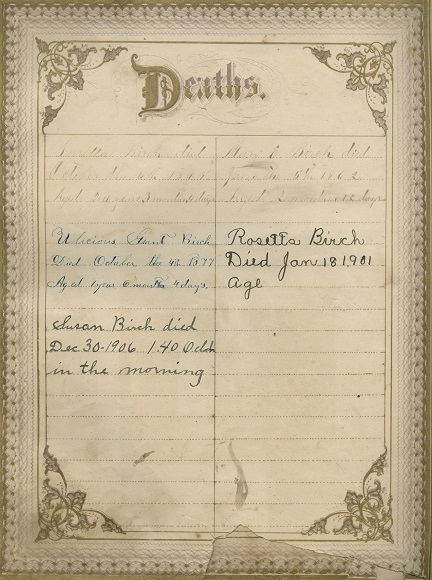 Deaths.
Birch died
October the 4th
Aged 3 months days
Birch died
June the 5th 1862
Aged 2 months 12 days
Ulicious Grant Birch
Died October the 4th 1877
Aged 1 year 6 months 4 days.
Rosetta Birch
Died Jan 18 1901
Age
Susan Birch died
Dec 30-1906 1.40 Oclok
in the morning